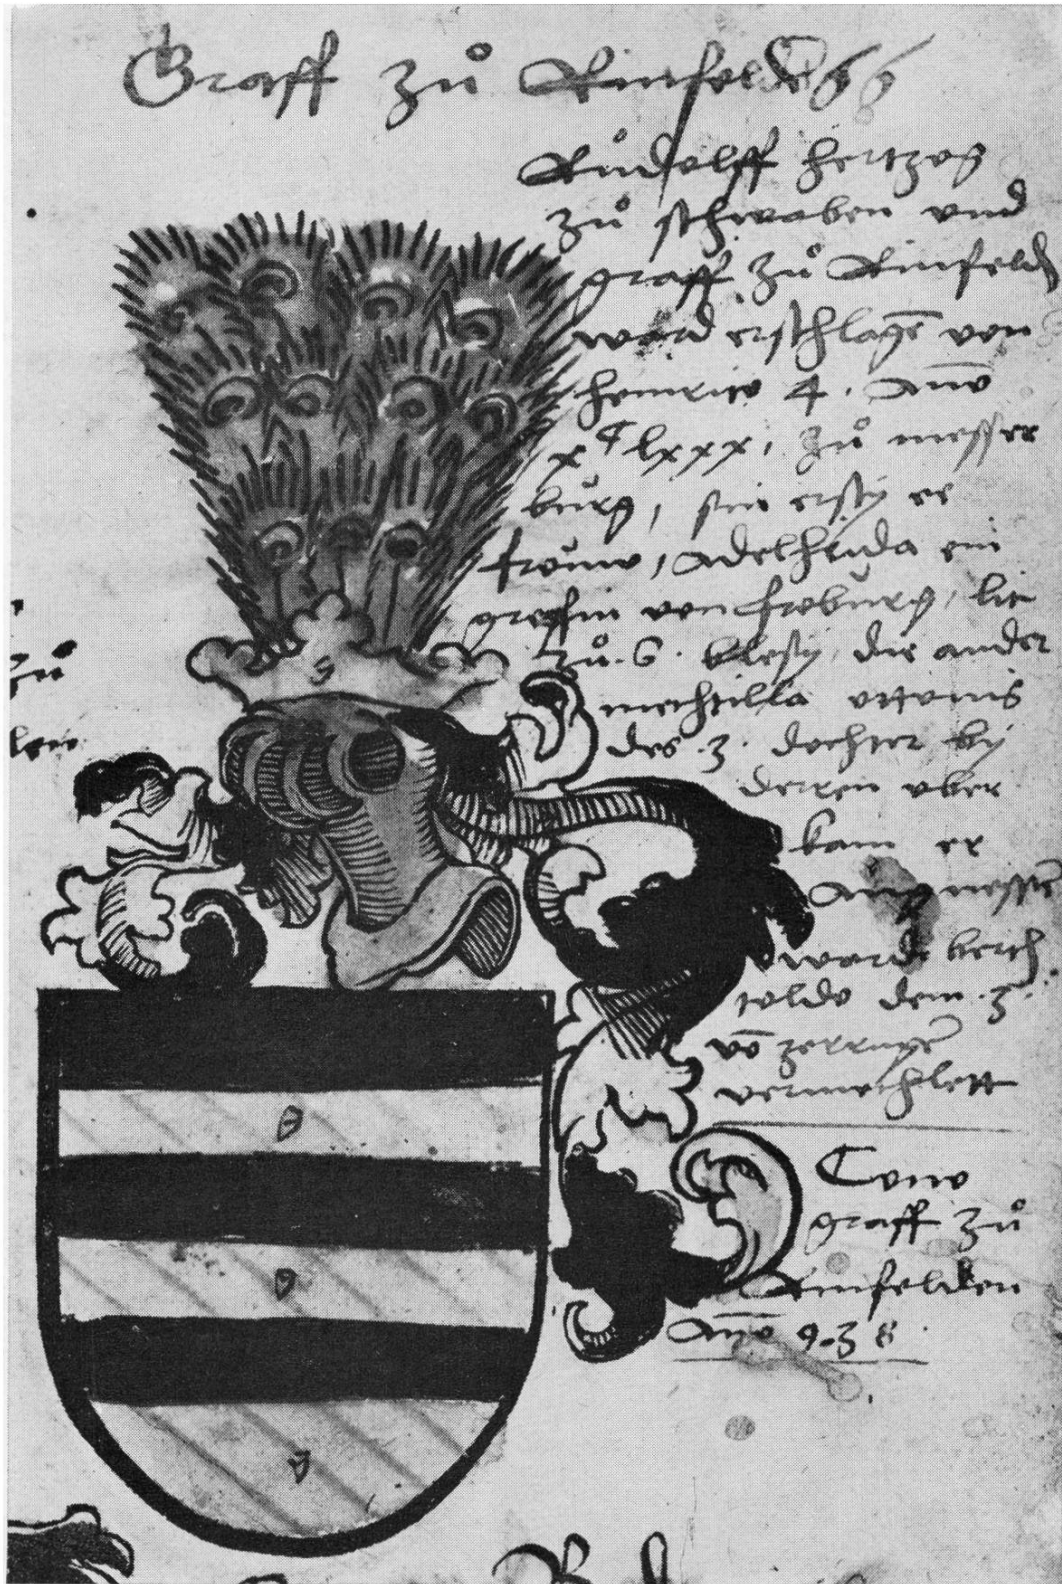 Graff zů Rinfelden
Růdolff hertzog
zů schwaben und
graff zů Rinfelden
ward erschlagē von
heinrico 4. Anno
xᶜlxxx, zů messer
burg, sin ersty ee
frouw, Adelheida ein
greffin von froburg, lit
zů. S. blesy, die ander
mechtilla ottonis
des .3. dochter by
derren uber
kam er
zů
len
ward berch
toldo dem .3.
vō zerrngē
vermechlett
Cůno
graff zů
Rinfelden
Anō 938.